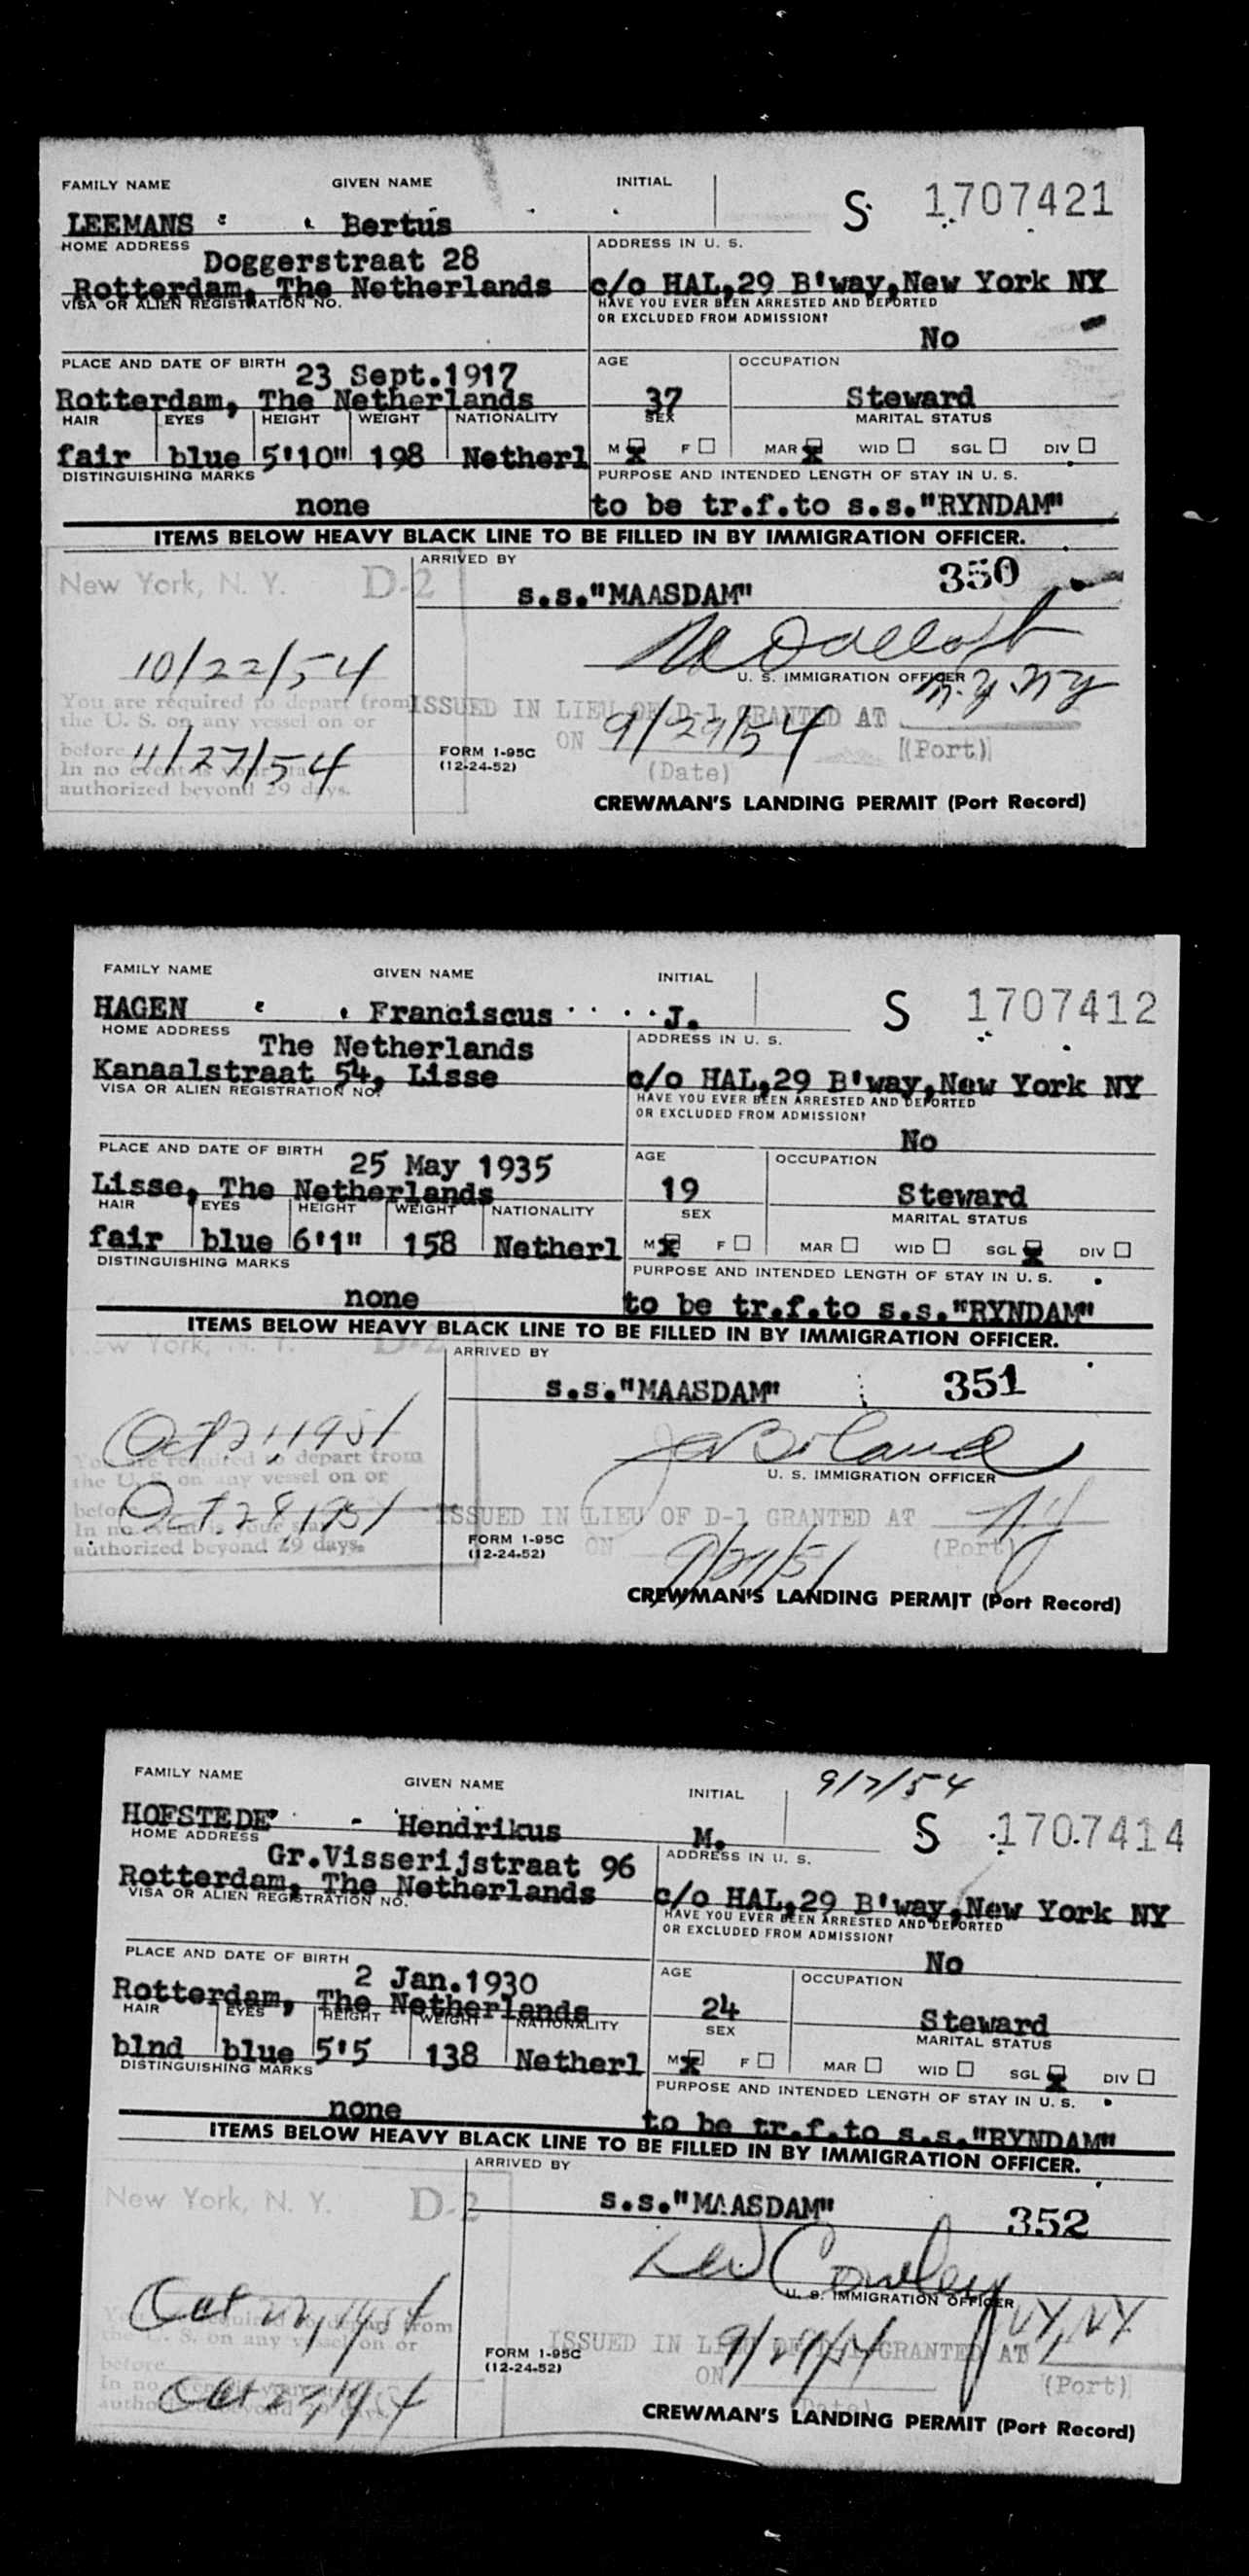 FAMILY NAME GIVEN NAME INITIAL
S 1707421
LEEMANS Bertus
HOME ADDRESS ADDRESS IN U. S.
Doggerstraat 28
Rotterdam, The Netherlands c/o HAL,29 B'way,New York NY
VISA OR ALIEN REGISTRATION NO. HAVE YOU EVER BEEN ARRESTED AND DEPORTED
OR EXCLUDED FROM ADMISSION?
No
PLACE AND DATE OF BIRTH AGE OCCUPATION
23 Sept.1917
Rotterdam, The Netherlands 37 Steward
HAIR EYES HEIGHT WEIGHT NATIONALITY SEX MARITAL STATUS
fair blue 5'10" 198 Netherl M F MAR WID SGL DIV
DISTINGUISHING MARKS PURPOSE AND INTENDED LENGTH OF STAY IN U. S.
none to be tr.f.to s.s."RYNDAM"
ITEMS BELOW HEAVY BLACK LINE TO BE FILLED IN BY IMMIGRATION OFFICER.
New York, N. Y. D-2 ARRIVED BY
s.s."MAASDAM" 350
10/22/54
U. S. IMMIGRATION OFFICER
N.Y. NY
You are required to depart from
the U. S. on any vessel on or
before 11/27/54
In no event is your stay
authorized beyond 29 days.
ISSUED IN LIEU OF D-1 GRANTED AT
ON 9/29/54 (Port)
(Date)
FORM I-95C
(12-24-52)
CREWMAN'S LANDING PERMIT (Port Record)
FAMILY NAME GIVEN NAME INITIAL
S 1707412
HAGEN Franciscus J.
HOME ADDRESS ADDRESS IN U. S.
The Netherlands
Kanaalstraat 54, Lisse c/o HAL,29 B'way,New York NY
VISA OR ALIEN REGISTRATION NO. HAVE YOU EVER BEEN ARRESTED AND DEPORTED
OR EXCLUDED FROM ADMISSION?
No
PLACE AND DATE OF BIRTH AGE OCCUPATION
25 May 1935
Lisse, The Netherlands 19 Steward
HAIR EYES HEIGHT WEIGHT NATIONALITY SEX MARITAL STATUS
fair blue 6'1" 158 Netherl M F MAR WID SGL DIV
DISTINGUISHING MARKS PURPOSE AND INTENDED LENGTH OF STAY IN U. S.
none to be tr.f.to s.s."RYNDAM"
ITEMS BELOW HEAVY BLACK LINE TO BE FILLED IN BY IMMIGRATION OFFICER.
New York, N. Y. D-2 ARRIVED BY
s.s."MAASDAM" 351
U. S. IMMIGRATION OFFICER
You are required to depart from
the U. S. on any vessel on or
before
In no event is your stay
authorized beyond 29 days.
ISSUED IN LIEU OF D-1 GRANTED AT NY
ON (Port)
FORM I-95C
(12-24-52)
CREWMAN'S LANDING PERMIT (Port Record)
FAMILY NAME GIVEN NAME INITIAL
9/7/54
S 1707414
HOFSTEDE Hendrikus M.
HOME ADDRESS ADDRESS IN U. S.
Gr.Visserijstraat 96
Rotterdam, The Netherlands c/o HAL,29 B'way,New York NY
VISA OR ALIEN REGISTRATION NO. HAVE YOU EVER BEEN ARRESTED AND DEPORTED
OR EXCLUDED FROM ADMISSION?
No
PLACE AND DATE OF BIRTH AGE OCCUPATION
2 Jan.1930
Rotterdam, The Netherlands 24 Steward
HAIR EYES HEIGHT WEIGHT NATIONALITY SEX MARITAL STATUS
blnd blue 5'5 138 Netherl M F MAR WID SGL DIV
DISTINGUISHING MARKS PURPOSE AND INTENDED LENGTH OF STAY IN U. S.
none to be tr.f.to s.s."RYNDAM"
ITEMS BELOW HEAVY BLACK LINE TO BE FILLED IN BY IMMIGRATION OFFICER.
New York, N. Y. D-2 ARRIVED BY
s.s."MAASDAM" 352
U. S. IMMIGRATION OFFICER
Oct 22, 1954 NY, NY.
ISSUED IN LIEU OF D-1 GRANTED AT
ON (Port)
(Date)
FORM I-95C
(12-24-52)
CREWMAN'S LANDING PERMIT (Port Record)